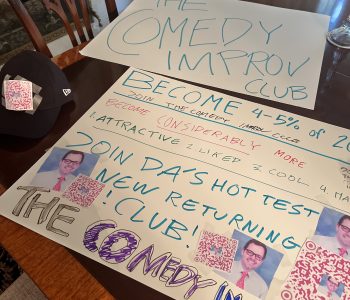 THE
COMEDY
IMPROV
CLUB
BECOME 4-5% of 20
JOIN THE COMEDY IMPROV CLUB
BECOME CONSIDERABLY MORE
1. ATTRACTIVE 2 LIKED 3 COOL 4
JOIN DA'S HOTTEST
NEW RETURNING
! CLUB!
THE COMEDY IM